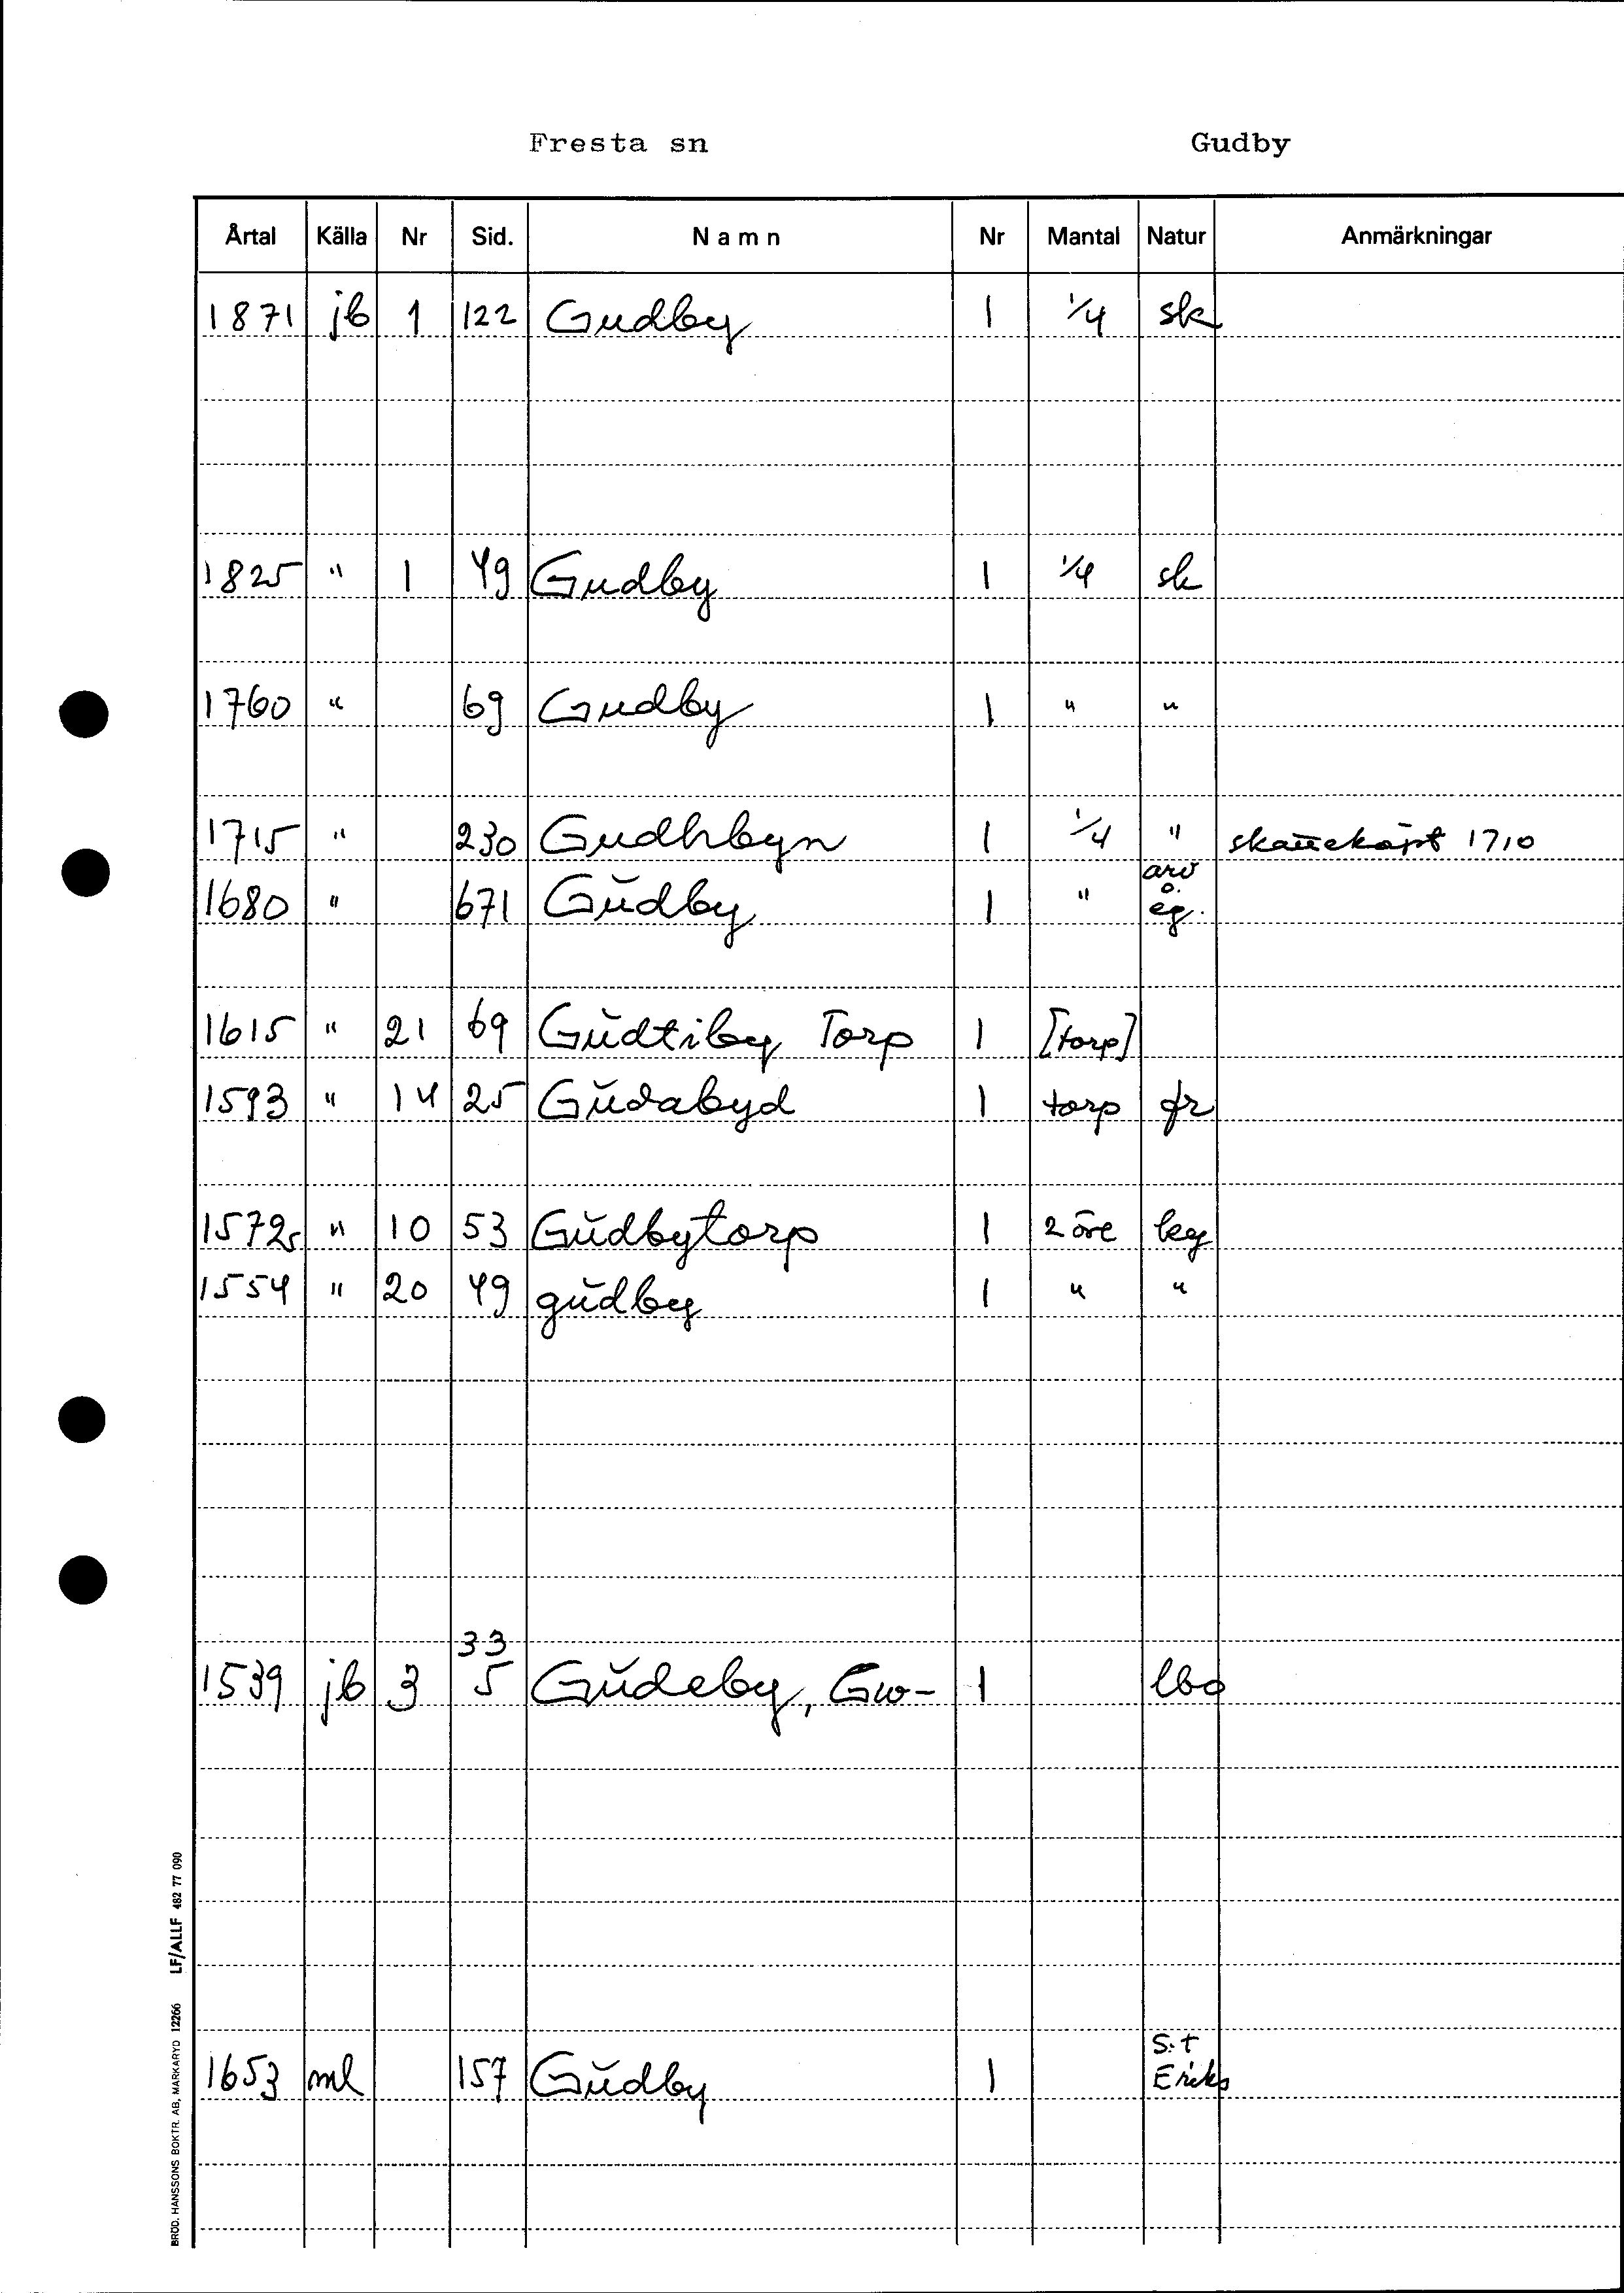 Fresta sn Gudby
Årtal Källa Nr Sid. Namn Nr Mantal Natur Anmärkningar
1871 jb 1 122 Gudby 1 1/4 sk
1825 " 1 49 Gudby 1 1/4 sk
1760 " 69 Gudby 1 " "
1715 " 230 Gudhbyn 1 1/4 " 1710
arv
o.
1680 " 671 Gŭdby 1 " eg.
1615 " 21 69 Gŭdtiby Torp 1 [torp]
1593 " 14 25 Gŭdabyd 1 torp fr
1572 " 10 53 Gŭdbytorp 1 2 öre
1554 " 20 49 gŭdby 1 " "
33
1539 jb 3 5 Gŭdeby, Gw- 1 lbo
S:t
1653 ml 157 Gŭdby 1 Eriks
BRÖD. HANSSONS BOKTR. AB, MARKARYD 12266 LF/ALLF 482 77 090